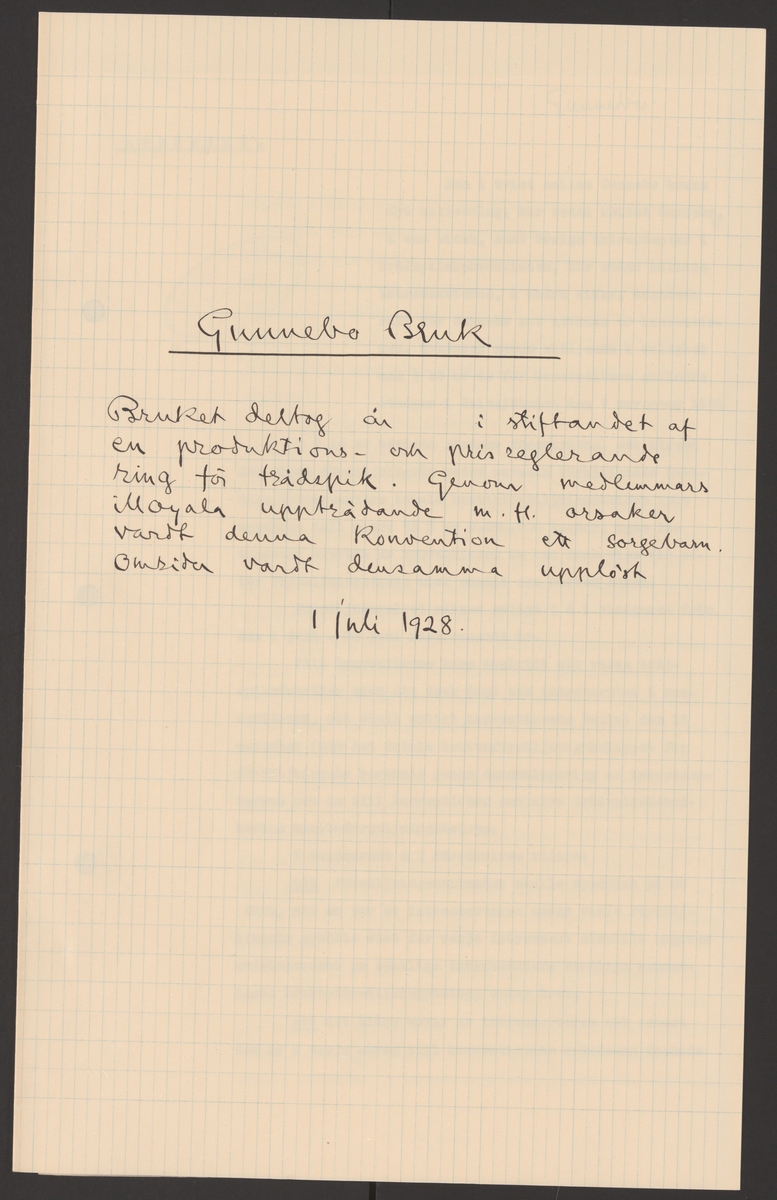 Gunnebo Bruk
Bruket deltog år i stiftandet af
en produktions- och prisreglerande
ring för trådspik. Genom medlemmars
illoyala uppträdande m. fl. orsaker
vardt denna Konvention ett sorgebarn.
Omsider vardt densamma upplöst
1 juli 1928.